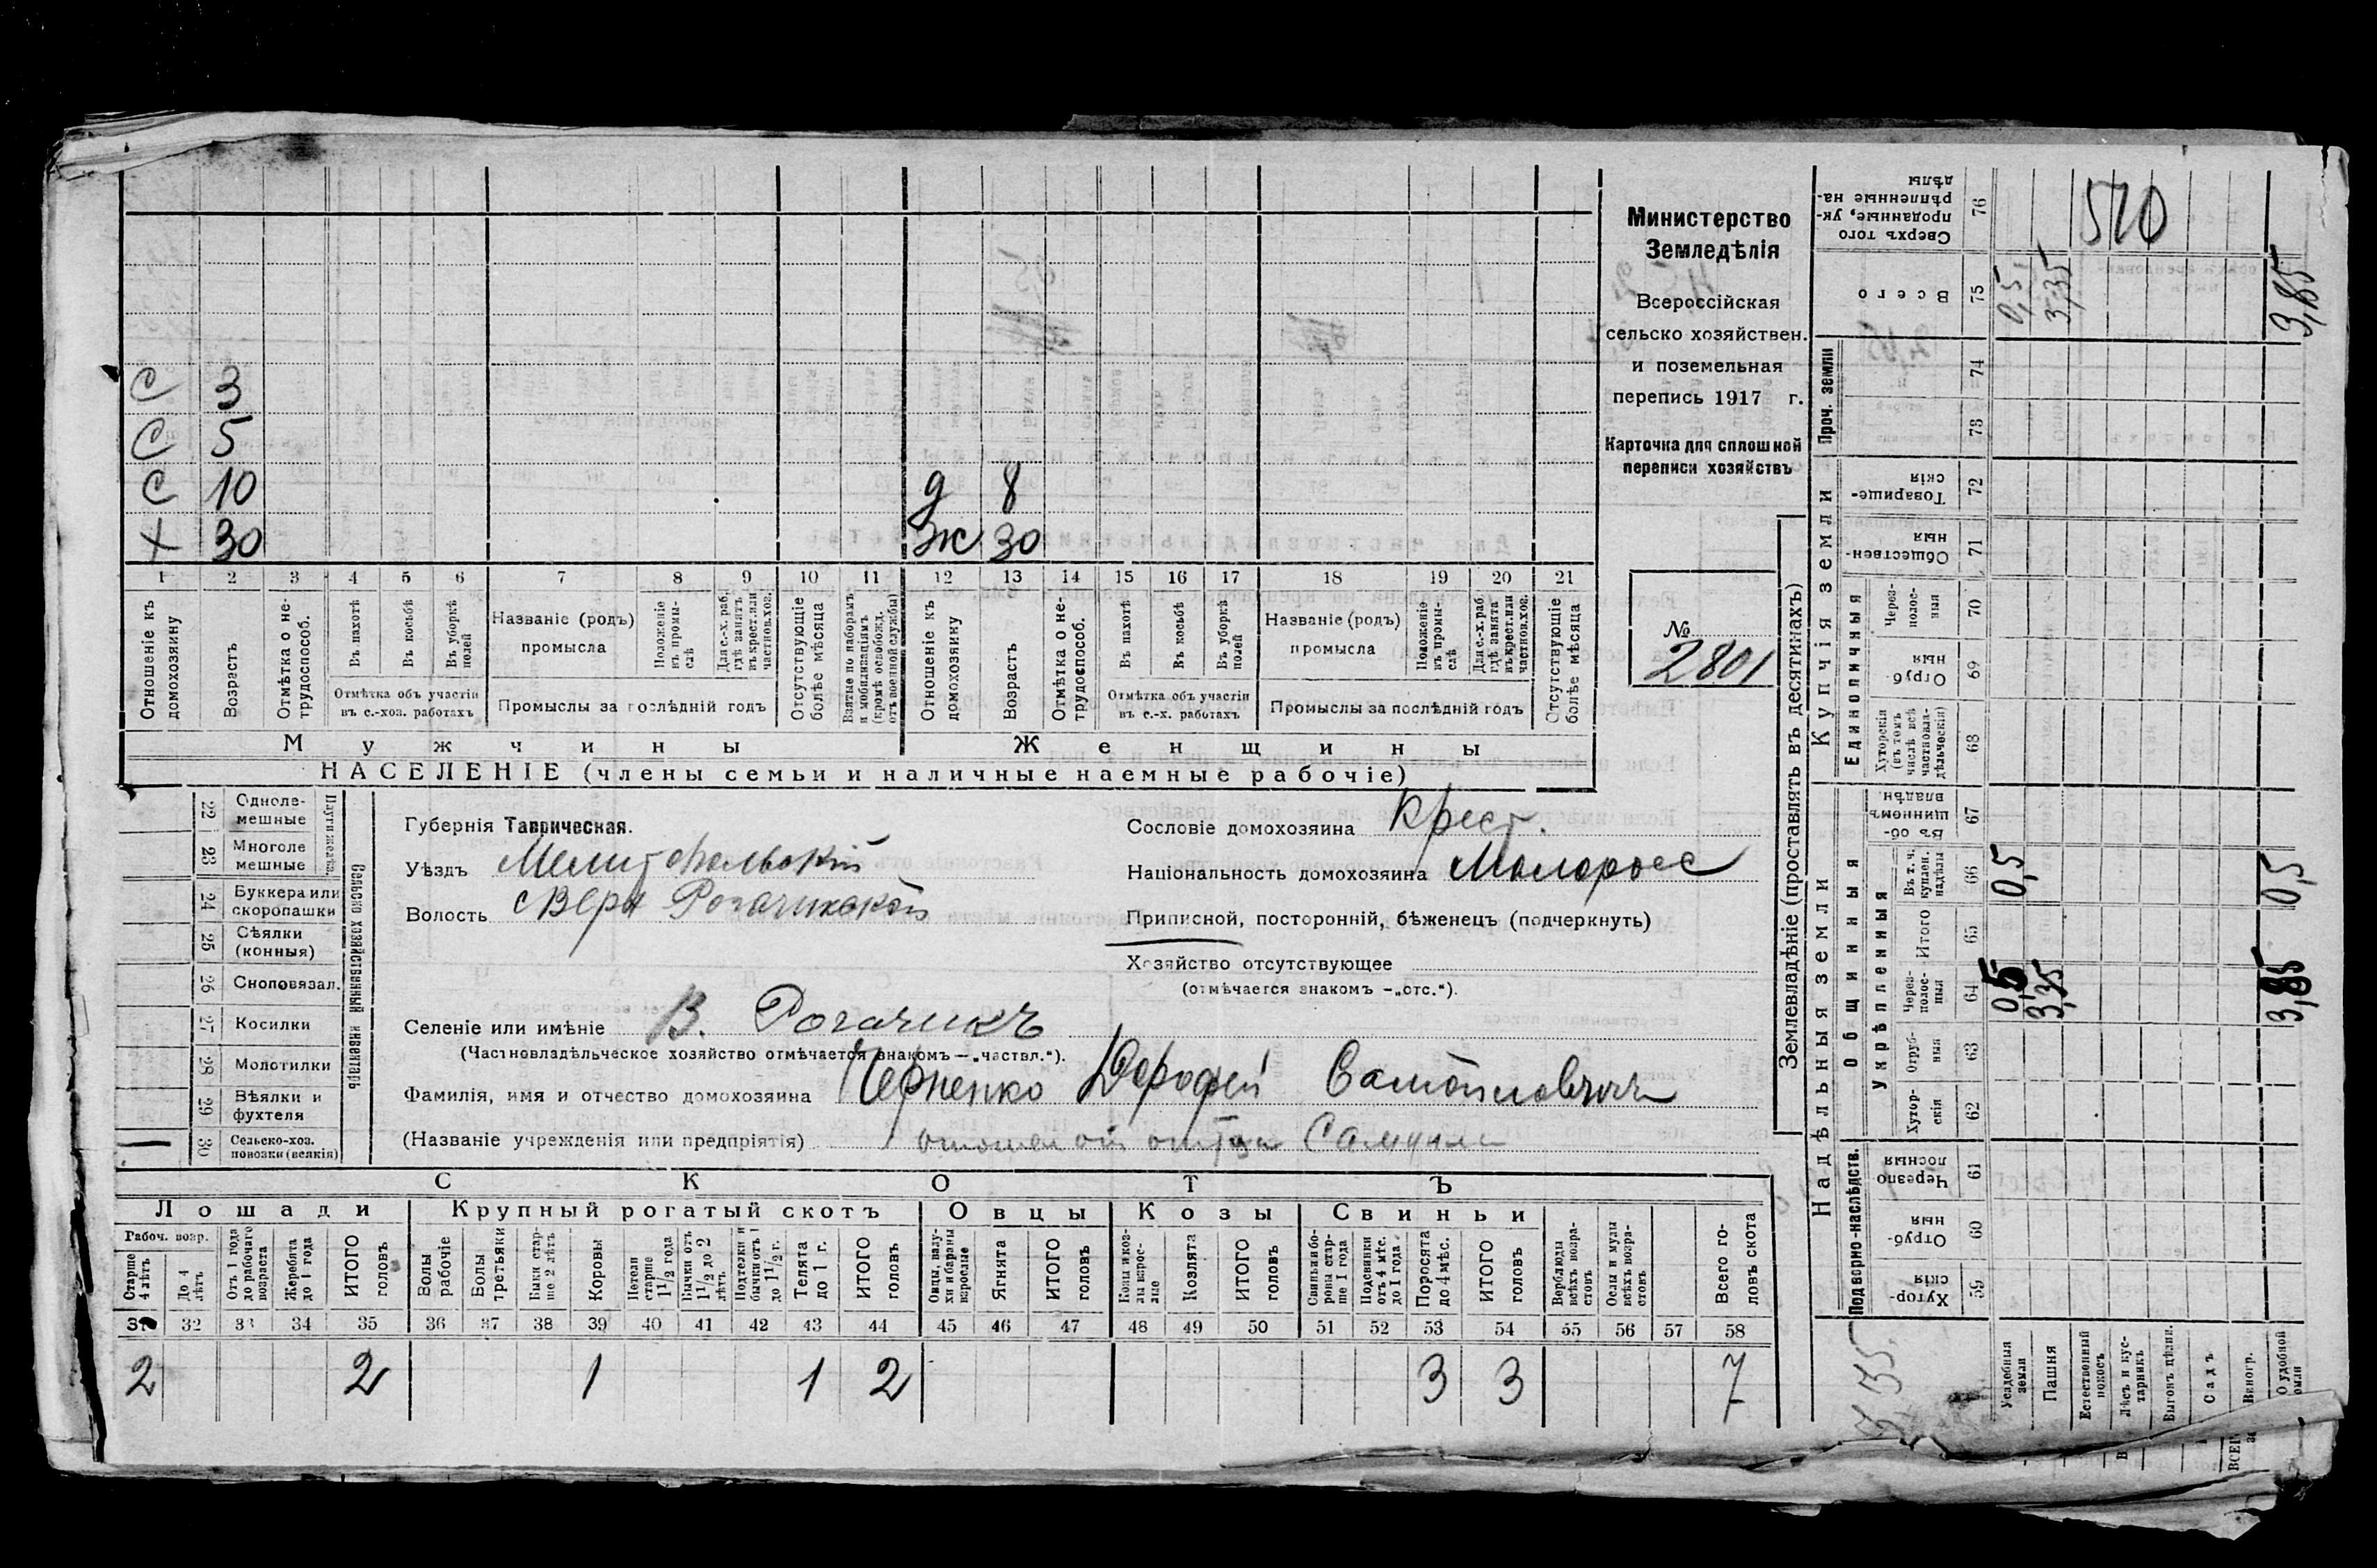 С 3
С 5
С 10 д 8
Х 30 Ж 30
1 2 3 4 5 6 7 8 9 10 11 12 13 14 15 16 17 18 19 20 21
Отношеніе къ домохозяину
Возрастъ
Отмѣтка о нетрудоспособ.
Въ пахотѣ
Въ косьбѣ
Въ уборкѣ полей
Отмѣтка объ участіи
въ с.-хоз. работахъ
Названіе (родъ)
промысла
Положеніе въ промыслѣ
Для с.-х. раб. гдѣ занятъ въ крест. или частнов. хоз.
Промыслы за послѣдній годъ
Отсутствующіе болѣе мѣсяца
Взятые по наборамъ и мобилизаціямъ (кромѣ освобожд. отъ военной службы)
Отношеніе къ домохозяину
Возрастъ
Отмѣтка о нетрудоспособ.
Въ пахотѣ
Въ косьбѣ
Въ уборкѣ полей
Отмѣтка объ участіи
въ с.-х. работахъ
Названіе (родъ)
промысла
Положеніе въ промыслѣ
Для с.-х. раб. гдѣ занята въ крест. или частнов. хоз.
Промыслы за послѣдній годъ
Отсутствующіе болѣе мѣсяца
Мужчины Женщины
НАСЕЛЕНІЕ (члены семьи и наличные наемные рабочіе)
Министерство
Земледѣлія
Всероссійская
сельско хозяйствен.
и поземельная
перепись 1917 г.
Карточка для сплошной
переписи хозяйствъ
№
2801
22 Однолемешные
23 Многолемешные
24 Буккера или скоропашки
25 Сѣялки (конныя)
26 Сноповязал.
27 Косилки
28 Молотилки
29 Вѣялки и фухтеля
30 Сельско-хоз. повозки (всякія)
Сельско хозяйственный инвентарь
Губернія Таврическая.
Уѣздъ Мелитопольскій
Волость Верх Рогачикской
Сословіе домохозяина Крест.
Національность домохозяина Малоросс
Приписной, посторонній, бѣженецъ (подчеркнуть)
Хозяйство отсутствующее
(отмѣчается знакомъ —„отс.“).
Селеніе или имѣніе В. Рогачикъ
(Частновладѣльческое хозяйство отмѣчается знакомъ —„частвл.“).
Фамилія, имя и отчество домохозяина Черненко Дорофей Самойловичъ
(Названіе учрежденія или предпріятія) отошел от отца Самуила
СКОТЪ
Лошади Крупный рогатый скотъ Овцы Козы Свиньи
Рабоч. возр.
Старше 4 лѣтъ
До 4 лѣтъ
Отъ 1 года до рабочаго возраста
Жеребята до 1 года
ИТОГО головъ
Волы рабочіе
Волы третьяки
Быки старше 2 лѣтъ
Коровы
Нетели старше 1 1/2 года
Бычки отъ 1 1/2 до 2 лѣтъ
Подтелки и бычки отъ 1 до 1 1/2 г.
Телята до 1 г.
ИТОГО головъ
Овцы, валухи и бараны взрослые
Ягнята
ИТОГО головъ
Козы и козлы взрослые
Козлята
ИТОГО головъ
Свиньи и боровы старше 1 года
Подсвинки отъ 4 мѣс. до 1 года
Поросята до 4 мѣс.
ИТОГО головъ
Верблюды всѣхъ возрастовъ
Ослы и мулы всѣхъ возрастовъ
Всего головъ скота
31 32 33 34 35 36 37 38 39 40 41 42 43 44 45 46 47 48 49 50 51 52 53 54 55 56 57 58
2 2 1 1 2 3 3 7
Землевладѣніе (проставлять въ десятинахъ)
Надѣльныя земли Купчія земли Проч. земли
Подворно-наслѣдств.
Общинныя
Укрѣпленныя
Единоличныя
Хуторскія 59
Отрубныя 60
Черезполосныя 61
Хуторскія 62
Отрубныя 63
Черезполосныя 64
Итого 65
Въ т. ч. куплен. надѣлы 66
Въ общинномъ владѣн. 67
Хуторскія (въ томъ числѣ всѣ частновладѣльческія) 68
Отрубныя 69
Черезполосныя 70
Общественныя 71
Товарищескія 72
73
74
Всего 75
Сверхъ того проданные, укрѣпленные надѣлы 76
Усадебная земля 0,5 0,5 0,5
Пашня 3,35 3,35
Естественный покосъ
Лѣсъ и кустарникъ
Выгонъ
Садъ
Виногр.
3,85 0,5 3,85
510
3,35